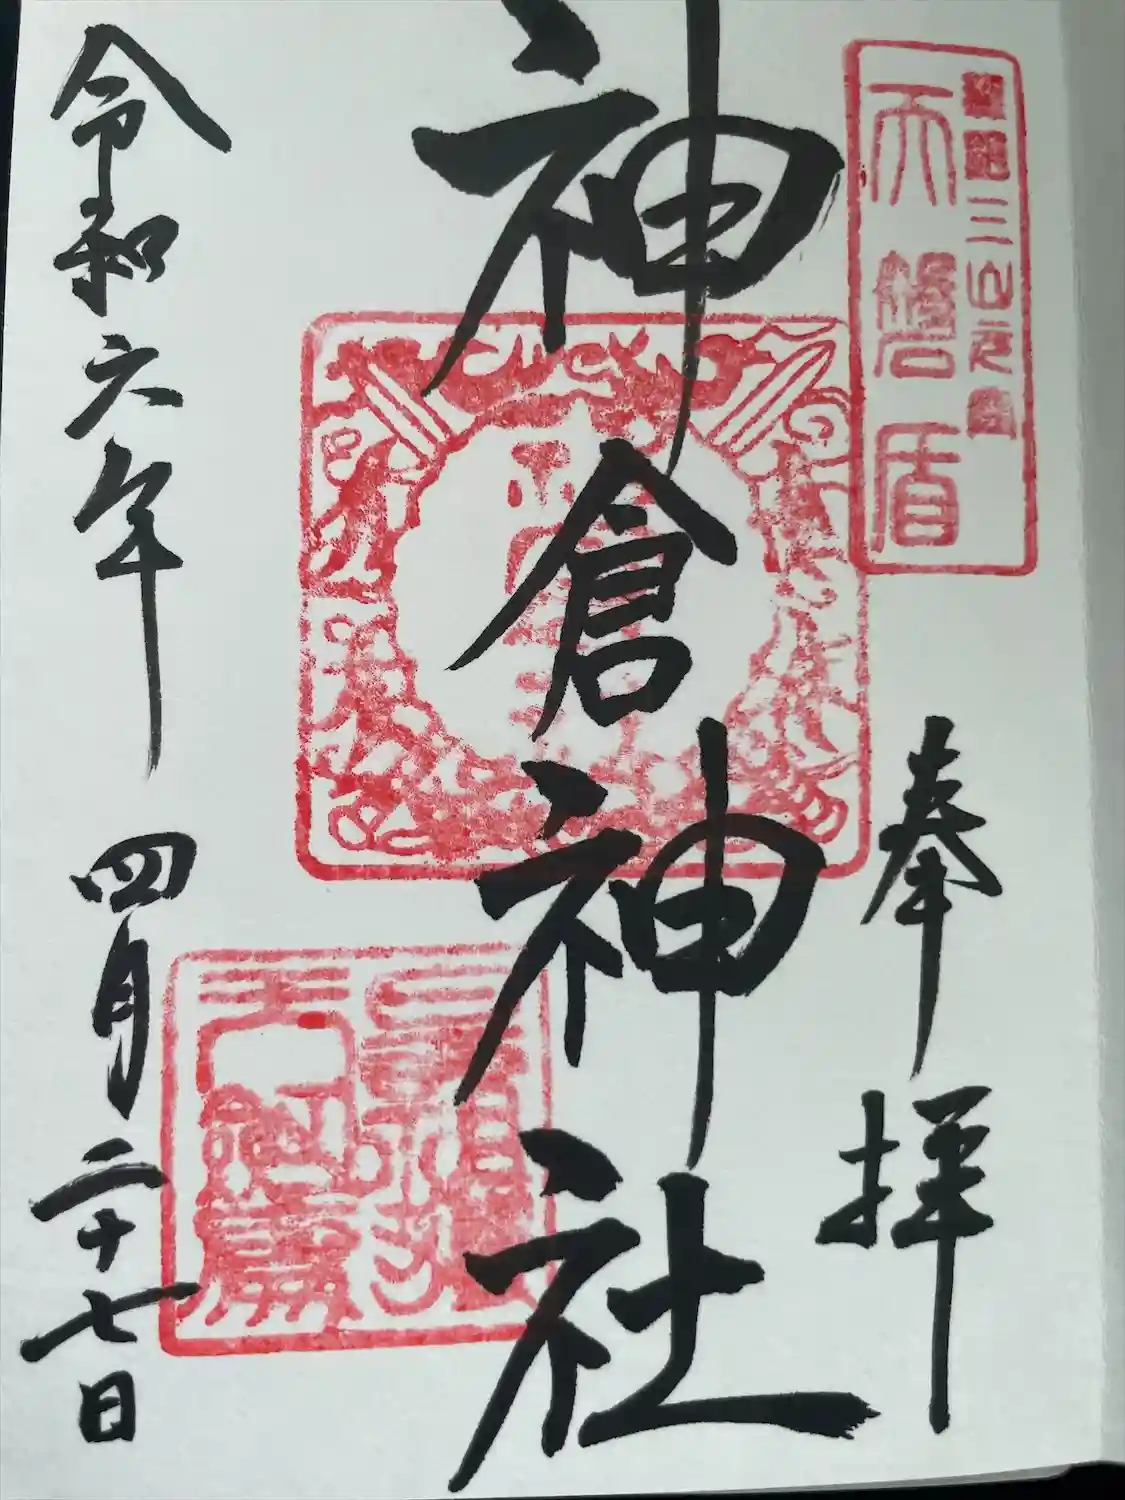 奉拝
三山元
天磐盾
神倉神社
令和六年四月二十七日